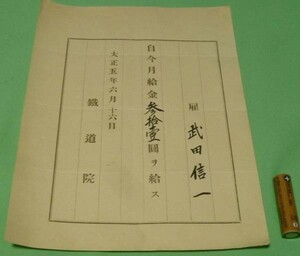 雇 武田信一
自今月給金参拾壹圓ヲ給ス
大正五年六月十六日
鐵道院